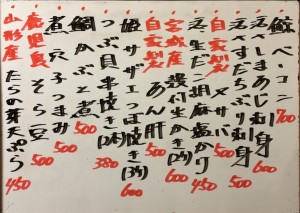 鯨ベーコン 700
えさしまあじ刺身 600
えてすだちぶり刺身 550
自家製 〆サバ 500
えぞ生だこ胡麻塩かり 450
宮城産 殻付生かき(2ケ) 600
自家製 あん肝 500
姫サザエつぼ焼き(3ケ) 600
つぶ貝串焼き(2本) 380
鯛かぶと煮 500
煮穴子つまみ 500
鹿児島 そら豆 500
山形産 たらの芽天ぷら 450